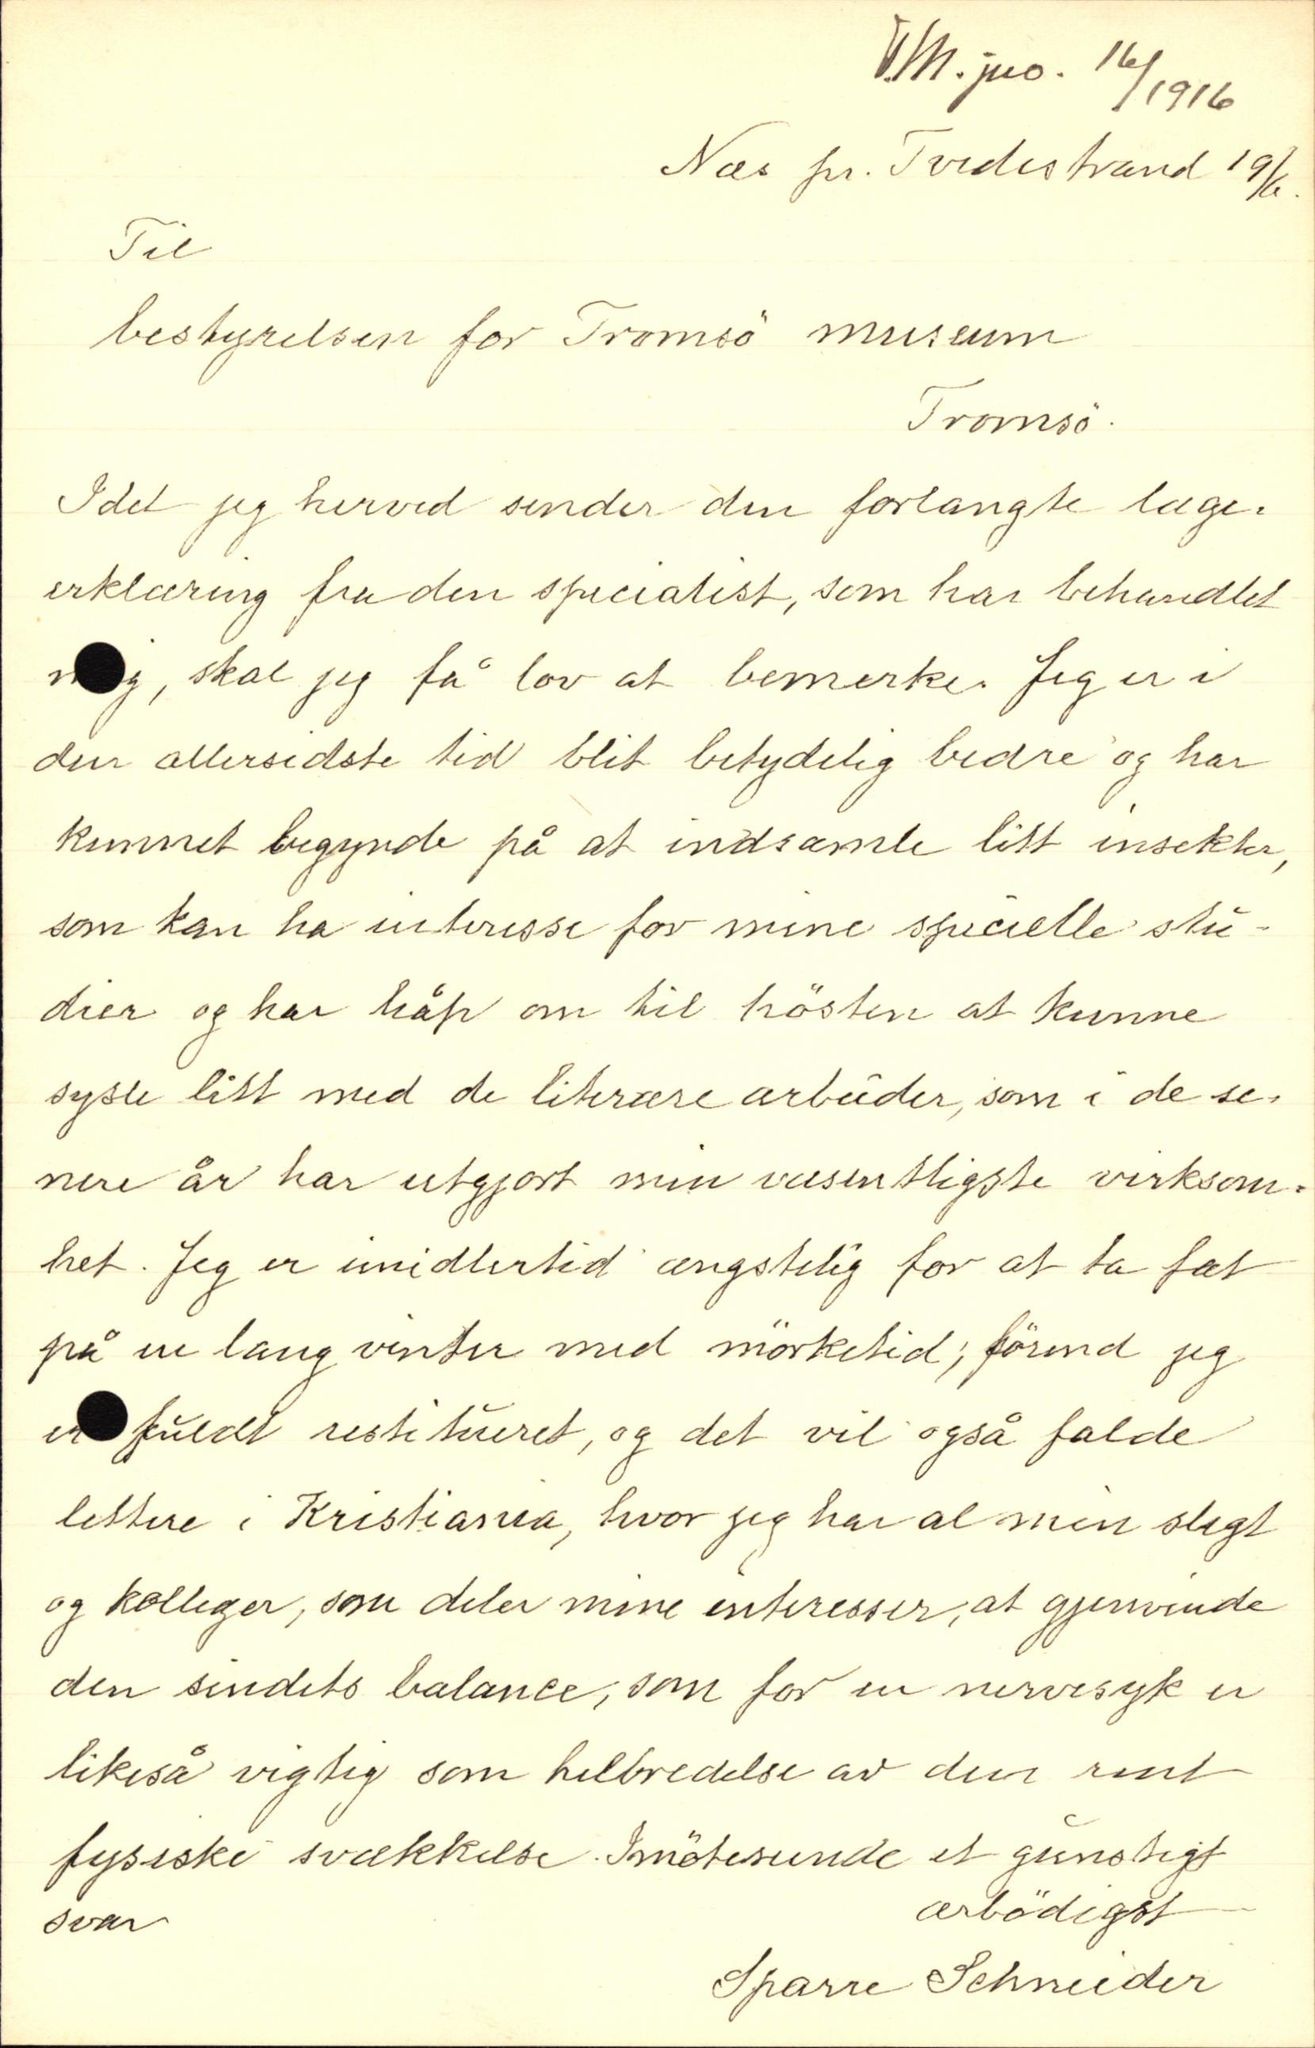 T.M. jno. 16/1916
Næs pr. Tvedestrand 19/6.
Til
bestyrelsen for Tromsö museum
Tromsö.
Idet jeg herved sender den forlangte læge-
erklæring fra den specialist, som har behandlet
mig, skal jeg få lov at bemerke. Jeg er i
den allersidste tid blit betydelig bedre og har
kunnet begynde på at indsamle litt insekter,
som kan ha interesse for mine specielle stu-
dier og har håp om til hösten at kunne
sysle litt med de literære arbeider, som i de se-
nere år har utgjort min væsentligste virksom-
het. Jeg er imidlertid ængstelig for at ta fat
på en lang vinter med mörketid, förend jeg
er fuldt restitueret, og det vil også falde
lettere i Kristiania, hvor jeg har al min slegt
og kolleger, som deler mine interesser, at gjenvinde
den sindets balance, som for en nervesyk er
likeså vigtig som helbredelse av den rent
fysiske svækkelse. Imöteseende et gunstigt
svar
ærbödigst
Sparre Schneider